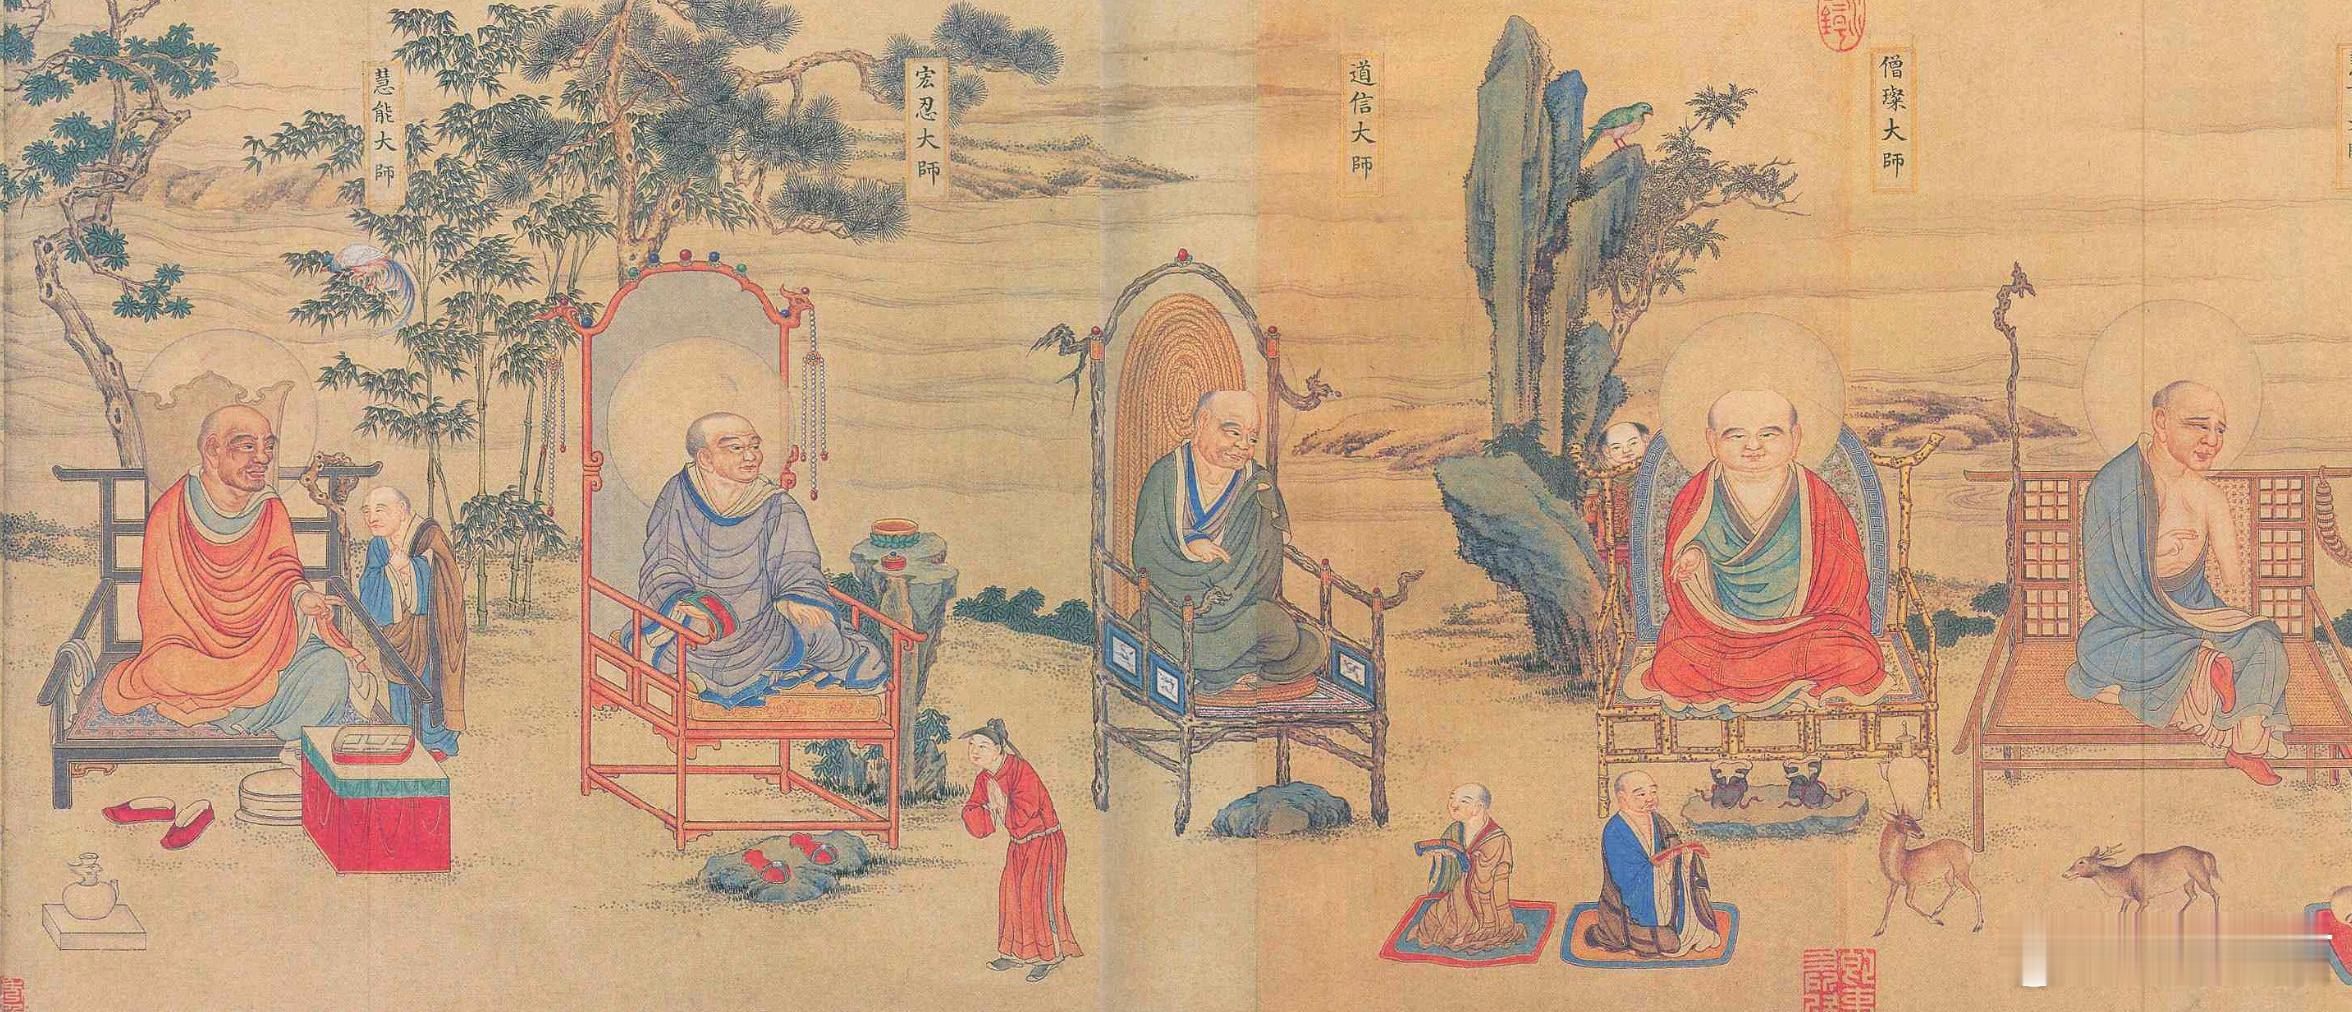 僧璨大師
道信大師
宏忍大師
慧能大師